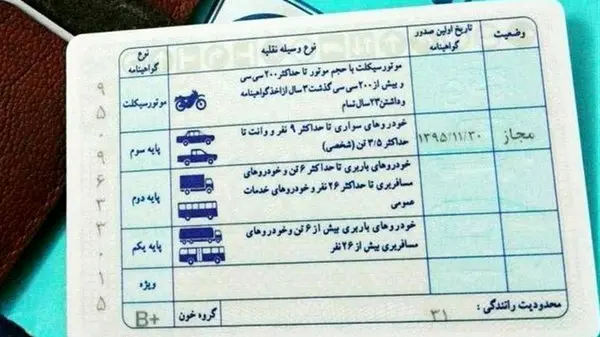 وضعیت
تاریخ اولین صدور
گواهینامه
نوع وسیله نقلیه
نوع
گواهینامه
موتورسیکلت با حجم موتور تا حداکثر ۲۰۰ سی سی
و بیش از ۲۰۰ سی سی گذشت ۳ سال از اخذ گواهینامه
و داشتن ۲۳ سال تمام
موتورسیکلت
مجاز
۱۳۹۵/۱۱/۳۰
خودروهای سواری تا حداکثر ۹ نفر و وانت تا
حداکثر ۳/۵ تن (شخصی)
پایه سوم
خودروهای باربری تا حداکثر ۶ تن و خودروهای
مسافربری تا حداکثر ۲۶ نفر و خودروهای خدمات
عمومی
پایه دوم
خودروهای باربری بیش از ۶ تن و خودروهای
مسافربری بیش از ۲۶ نفر
پایه یکم
ویژه
محدودیت رانندگی :
۳۱
گروه خون
B+
۹۵۰۹۶۳۳۰۱۵